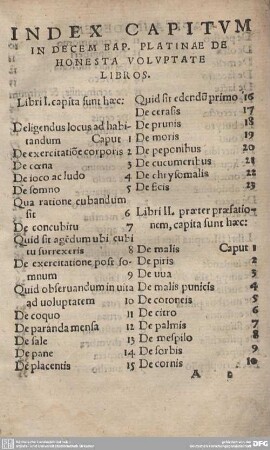 INDEX CAPITVM
IN DECEM BAP. PLATINAE DE
HONESTA VOLVPTATE
LIBROS.
Libri I. capita sunt hæc:
Deligendus locus ad habi
tandum Caput 1
De exercitatiõe corporis 2
De cœna 3
De ioco ac ludo 4
De somno 5
Qua ratione cubandum
sit 6
De concubitu 7
Quid sit agẽdum ubi cubi
tu surrexeris 8
De exercitatione post som
mnum 9
Quid obseruandum in uita
ad uoluptatem 10
De coquo 11
De paranda mensa 12
De sale 13
De pane 14
De placentis 15
Quid sit edendũ primo 16
De cerasis 17
De prunis 18
De moris 19
De peponibus 20
De cucumeribus 21
De chrysomalis 22
De ficis 23
Libri II. præter præfatio-
nem, capita sunt hæc:
De malis Caput 1
De piris 2
De uua 3
De malis punicis 4
De cotoneis 5
De citro 6
De palmis 7
De mespilo 8
De sorbis 9
De cornis 10
A